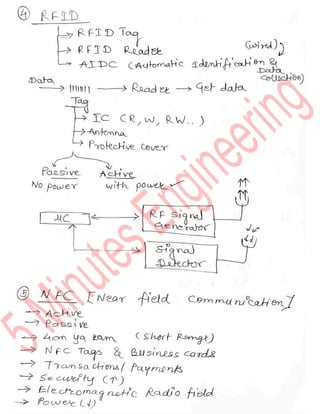 ④ RFID
→ RFID Tag
→ RFID Reader (wired)
→ AIDC (Automatic Identification & Data Collection)
Data
→ ||||||| → Reader → Get data
Tag
→ IC (R, W, RW..)
→ Antenna
→ Protective Cover
Passive Active
No power with power ✓
MC
RF Signal Generator
Signal Detector
⑤ NFC [Near field Communication]
→ Active
→ Passive
→ 4cm ya kam (Short Range)
→ NFC Tags & Business cards
→ Transactions/ Payments
→ Security (↑)
→ Electromagnetic Radio field
→ Power (↓)
5 Minutes Engineering